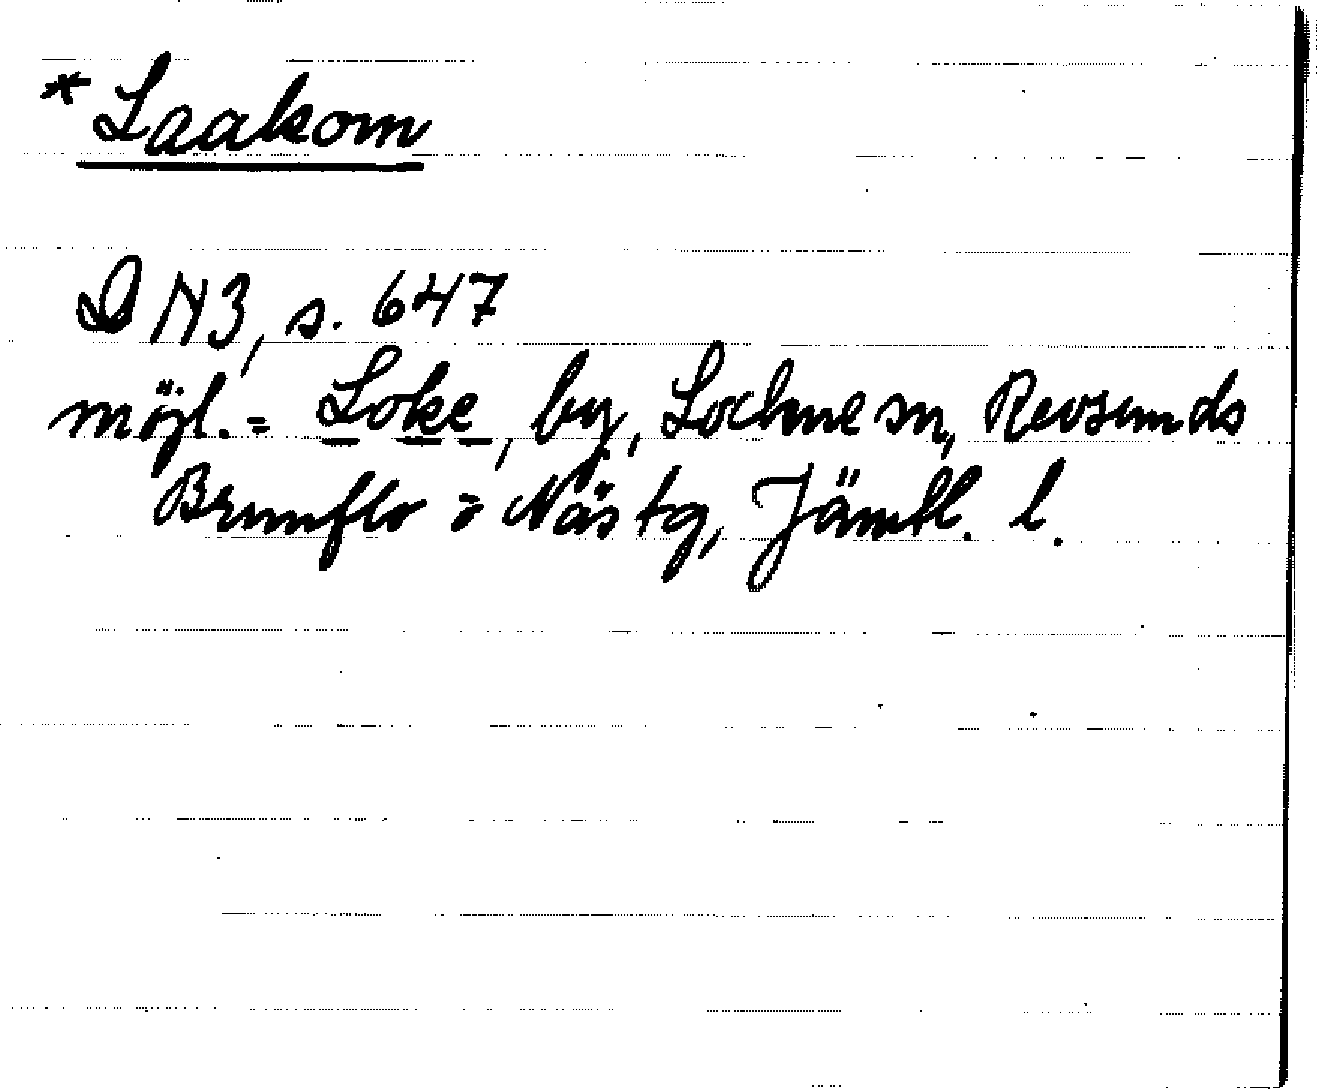 *Laakom
DN3, s. 647
möjl. = Loke, by, Lockne sn, Revsunds
Brunflo = Näs tg, Jämtl. l.